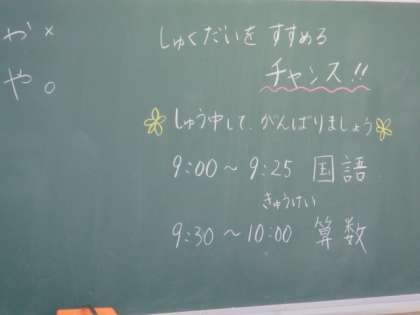 しゅくだいを すすめる
チャンス!!
しゅう中して、がんばりましょう
9:00〜9:25 国語
きゅうけい
9:30〜10:00 算数
が×
や。